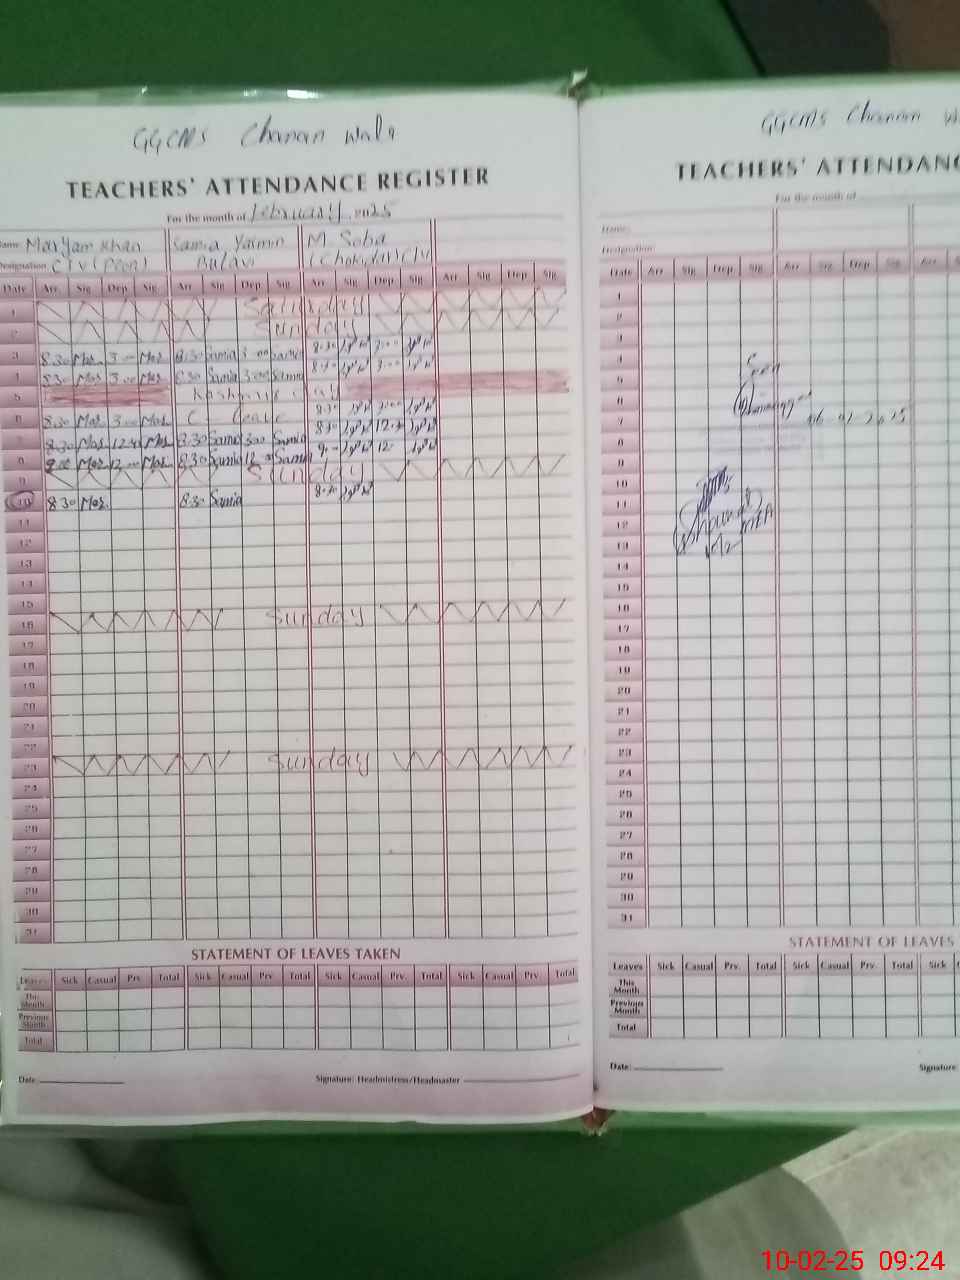 GGCMS Chanan Wala
TEACHERS' ATTENDANCE REGISTER
For the month of February 2025
Name Maryam Khan Samia Yasmin M. Soba
Designation C IV (Peon) Bulavi (Chokidar) C IV
Date Arr. Sig. Dep. Sig. Arr Sig Dep. Sig. Arr Sig Dep Sig Arr. Sig. Dep. Sig.
1 Saturday
2 Sunday
3 8.30 3.00 8:30 Samia 3.00 Samia 8.30 3.00
4 8.30 3.00 8.30 Samia 3.00 Samia 8.30 3.00
5 Kashmir Day
6 8.30 3.00 C Leave 8.30 3.00
7 8.30 8.30 Samia 3.00 Samia 8.30
8 12.00 8.30 Samia 12 Samia 12
9 Sunday
10 8.30 8.30 Samia 8.30
11
12
13
14
15
16 Sunday
17
18
19
20
21
22
23 Sunday
24
25
26
27
28
29
30
31
STATEMENT OF LEAVES TAKEN
Leaves Sick Casual Prv. Total Sick Casual Prv. Total Sick Casual Prv. Total Sick Casual Prv. Total
This Month
Previous Month
Total
Date: Signature: Headmistress/Headmaster
GGCMS Chanan
TEACHERS' ATTENDANC
For the month of
Name
Designation
Date Arr Sig. Dep. Sig. Arr. Sig. Dep. Sig. Arr.
1
2
3
4
5 Seen
6
7
8
9
10
11
12
13
14
15
16
17
18
19
20
21
22
23
24
25
26
27
28
29
30
31
STATEMENT OF LEAVES
Leaves Sick Casual Prv. Total Sick Casual Prv. Total Sick
This Month
Previous Month
Total
Date: Signature
10-02-25 09:24